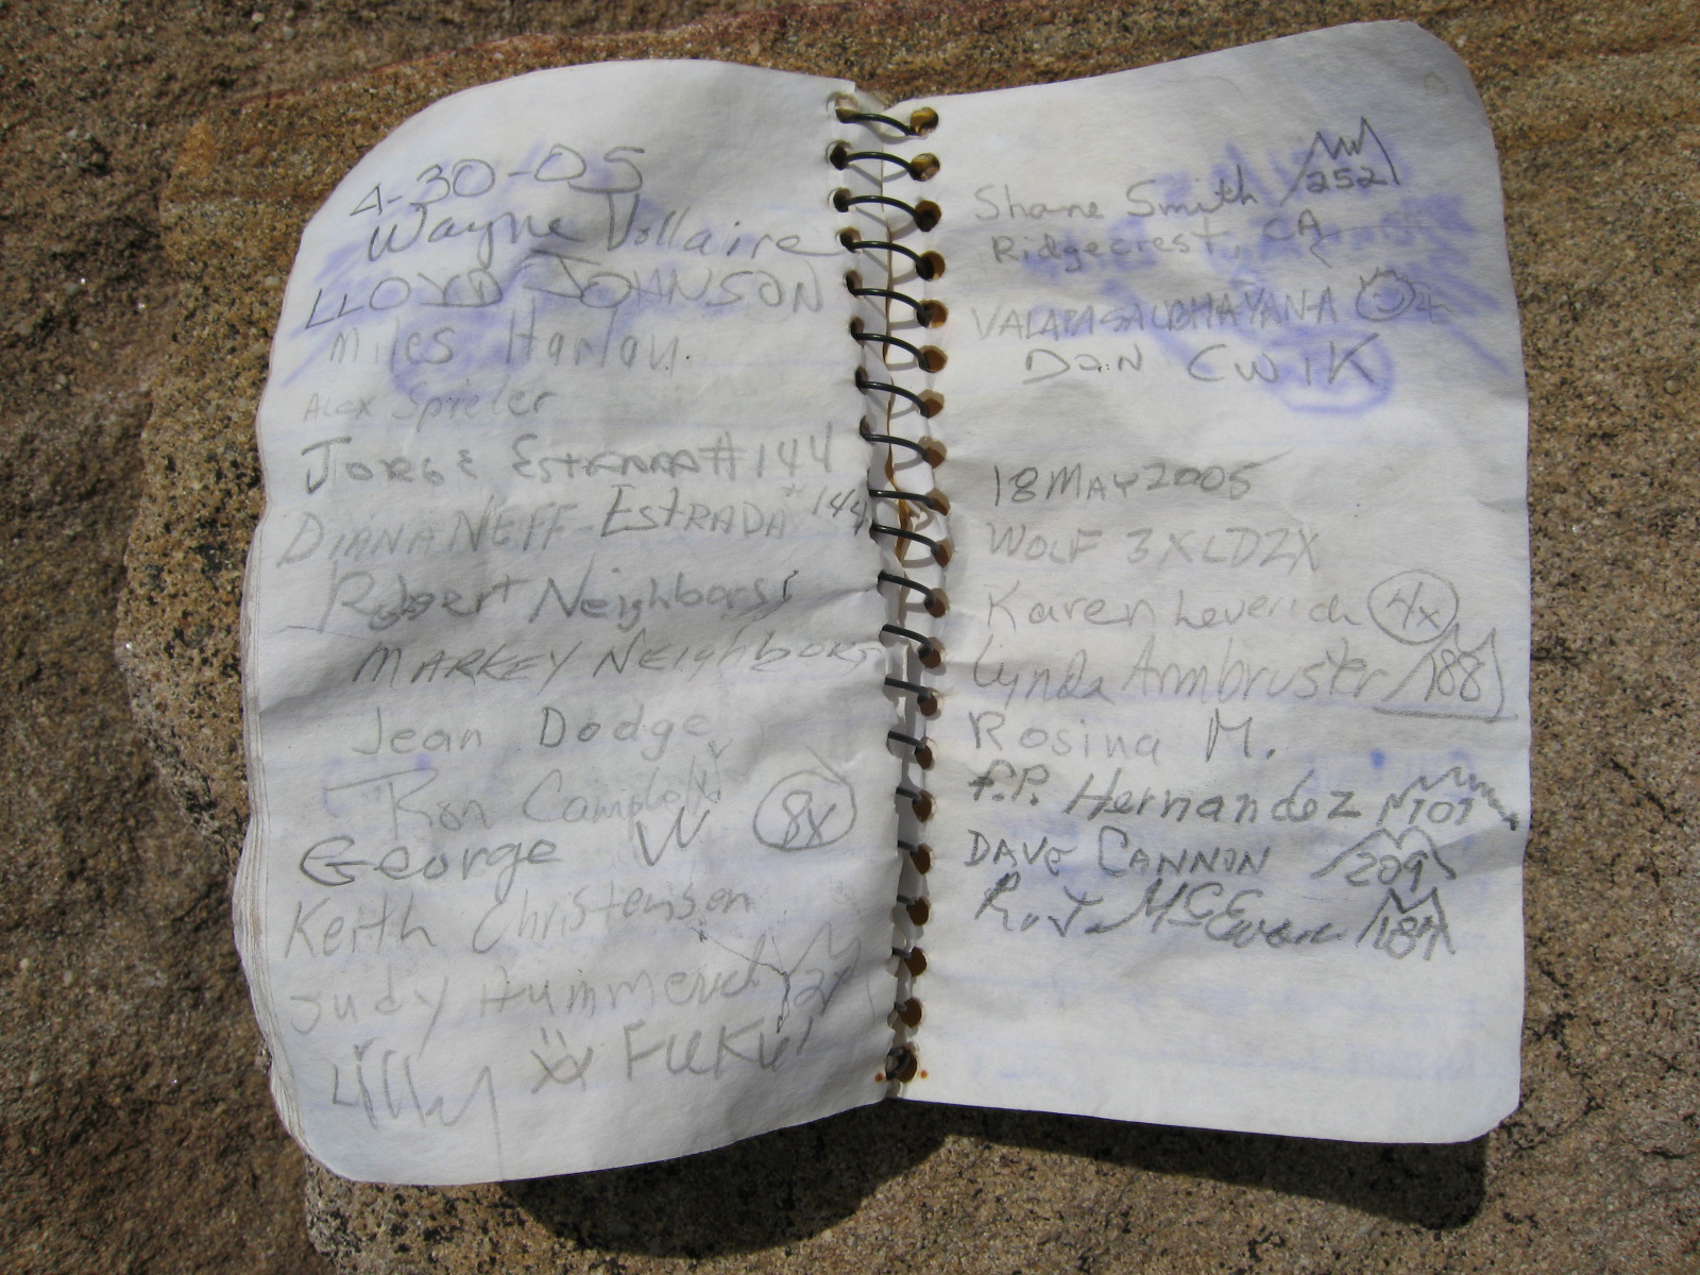 4-30-05
Wayne Vollaire
LLOYD JOHNSON
Miles Harlan
Alex Spieler
JORGE ESTRADA #144
DIANA NEFF-ESTRADA #144
Robert Neighbors
MARKEY NEighbors
Jean Dodge
Ron Campbell
George W 8x
Keith Christensen
Judy Hummerich
Lilly
Shane Smith 252
Ridgecrest, CA
DAN CWIK
18 MAY 2005
WOLF 3XLDZX
Karen Leverich 4x
Lynda Armbruster 188
Rosina M.
P.P. Hernandez 101
DAVE CANNON 209
R.J.